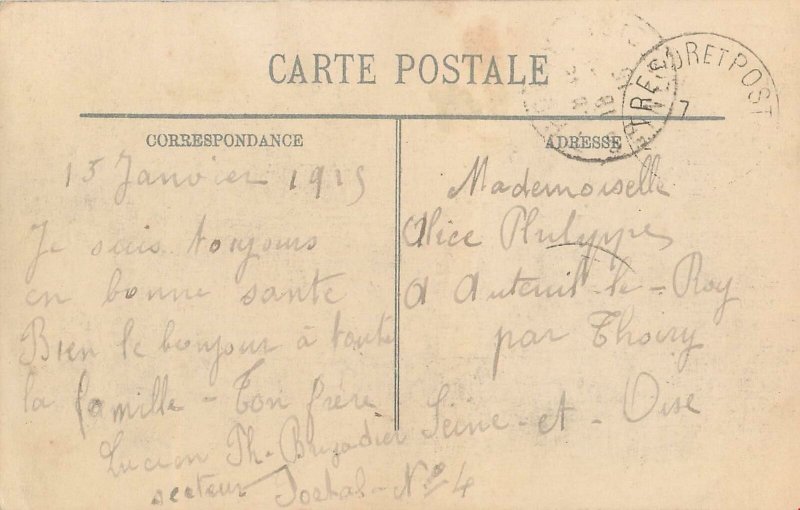 CARTE POSTALE
TRESOR ET POSTES
7
CORRESPONDANCE
15 Janvier 1915
Je suis toujours
en bonne sante
Bien le bonjour à toute
la famille - Ton frère
Lucien Ph. Brigadier
secteur Postal - No 4
ADRESSE
Mademoiselle
Alice Philyppes
a Auteuil-le-Roy
par Thoiry
Seine-et-Oise